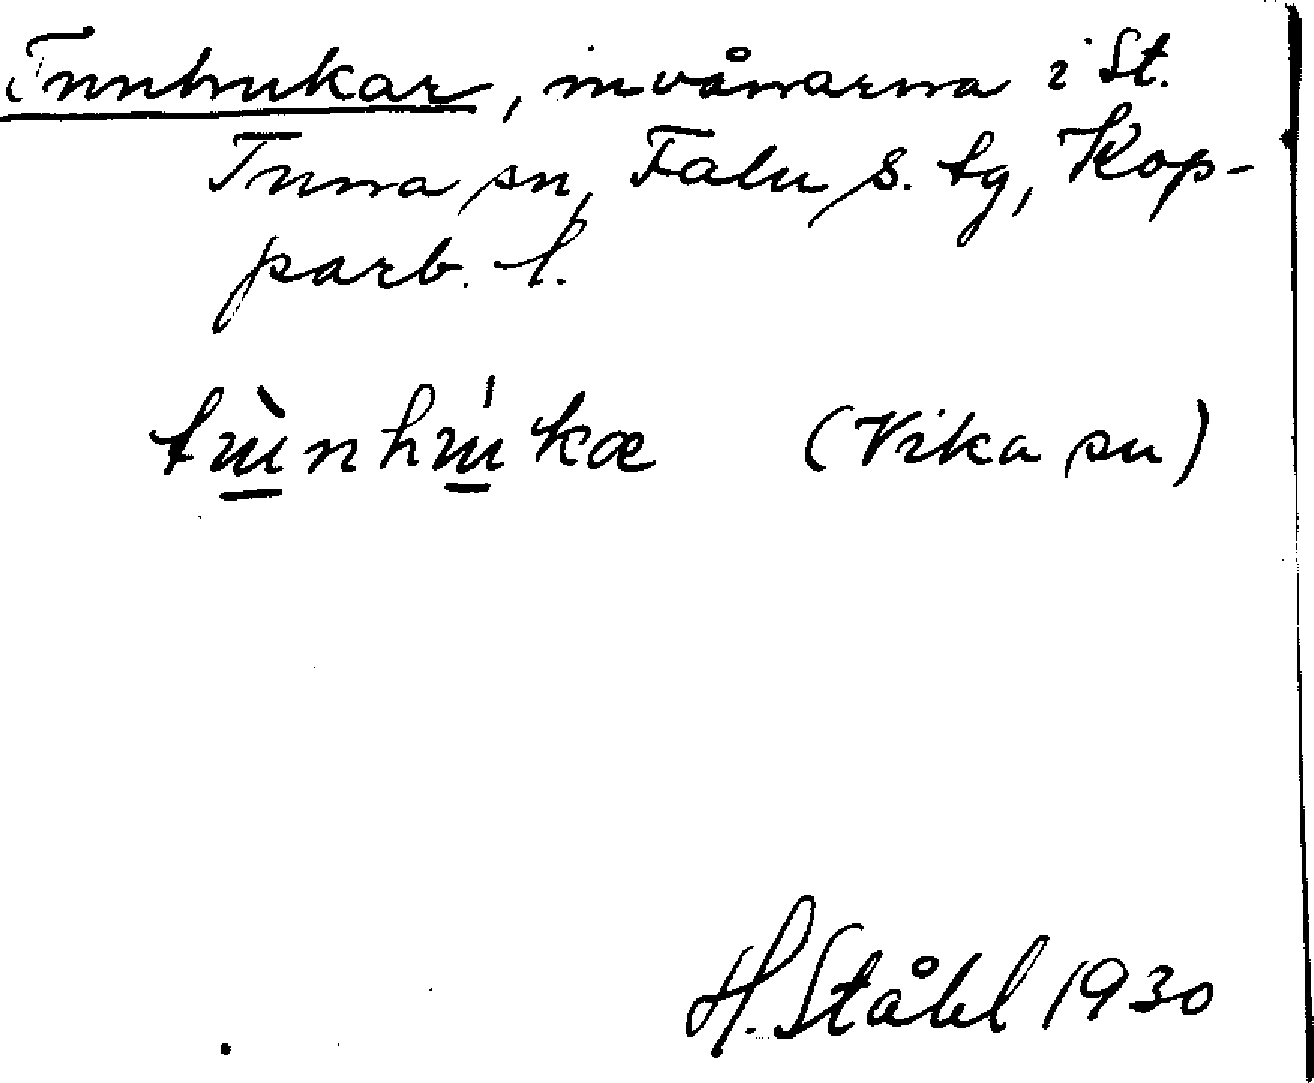 Tunhukar, invånarna i St.
Tuna sn, Falu s. tg, Kop-
parb. l.
tùnhúkæ (Vika sn)
H. Ståhl 1930